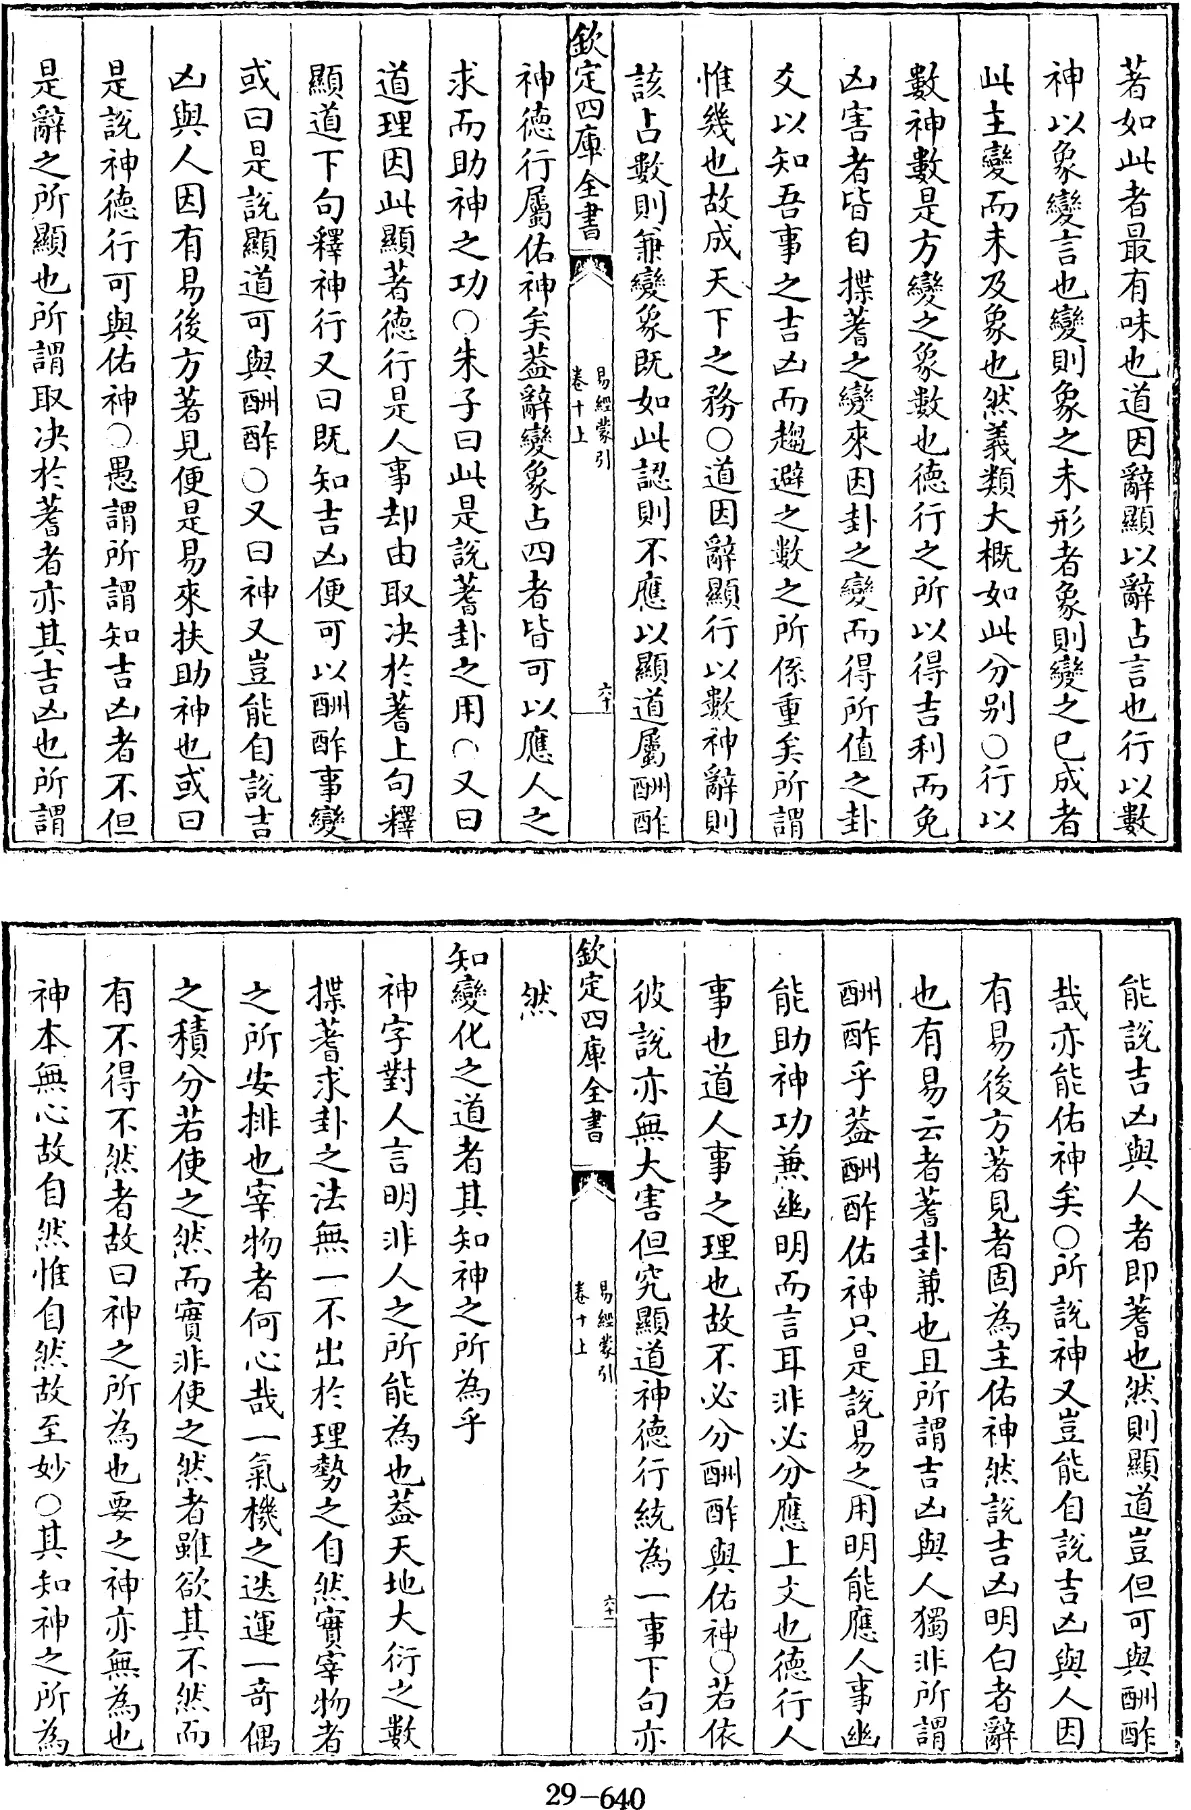 著如此者最有味也道因辭顯以辭占言也行以數
神以象變言也變則象之未形者象則變之已成者
此主變而未及象也然義類大概如此分别○行以
數神數是方變之象數也德行之所以得吉利而免
凶害者皆自揲蓍之變來因卦之變而得所值之卦
爻以知吾事之吉凶而趨避之數之所係重矣所謂
惟幾也故成天下之務○道因辭顯行以數神辭則
該占數則兼變象既如此認則不應以顯道屬酬酢
欽定四庫全書
易經蒙引
卷十上
六十
神德行屬佑神矣葢辭變象占四者皆可以應人之
求而助神之功○朱子曰此是說蓍卦之用○又曰
道理因此顯著德行是人事却由取决於蓍上句釋
顯道下句釋神行又曰既知吉凶便可以酬酢事變
或曰是說顯道可與酬酢○又曰神又豈能自說吉
凶與人因有易後方著見便是易來扶助神也或曰
是說神德行可與佑神○愚謂所謂知吉凶者不但
是辭之所顯也所謂取决於蓍者亦其吉凶也所謂
能說吉凶與人者即蓍也然則顯道豈但可與酬酢
哉亦能佑神矣○所說神又豈能自說吉凶與人因
有易後方著見者固為主佑神然說吉凶明白者辭
也有易云者蓍卦兼也且所謂吉凶與人獨非所謂
酬酢乎葢酬酢佑神只是說易之用明能應人事幽
能助神功兼幽明而言耳非必分應上文也德行人
事也道人事之理也故不必分酬酢與佑神○若依
彼說亦無大害但究顯道神德行統為一事下句亦
欽定四庫全書
易經蒙引
卷十上
六十一
然
知變化之道者其知神之所為乎
神字對人言明非人之所能為也葢天地大衍之數
揲蓍求卦之法無一不出於理勢之自然實宰物者
之所安排也宰物者何心哉一氣機之迭運一奇偶
之積分若使之然而實非使之然者雖欲其不然而
有不得不然者故曰神之所為也要之神亦無為也
神本無心故自然惟自然故至妙○其知神之所為
29-640